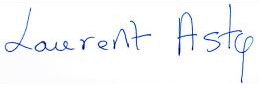 Laurent Asty